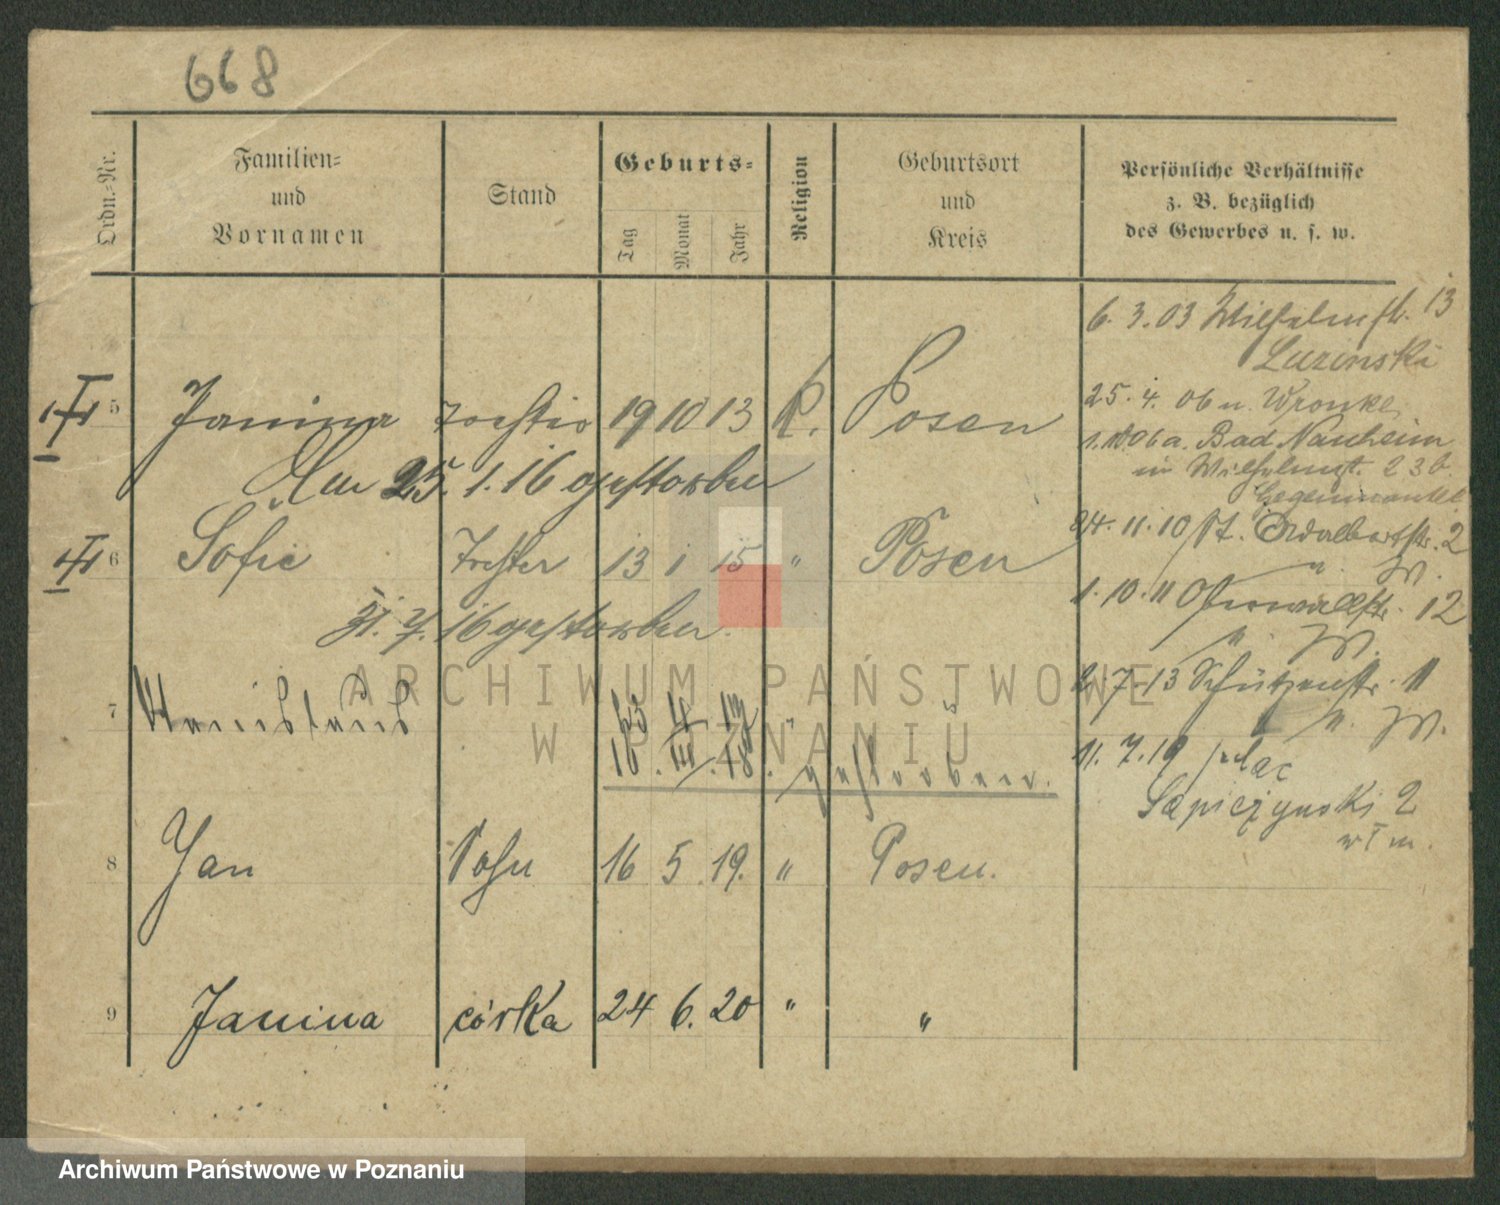 668
Ordn.-Nr.
Familien-
und
Vornamen
Stand
Geburts-
Tag
Monat
Jahr
Religion
Geburtsort
und
Kreis
Persönliche Verhältnisse
z. B. bezüglich
des Gewerbes u. s. w.
5 Janina 19 10 13 K. Posen
25. 1. 16 gestorben
6 Sofie Tochter 13 1 15 " Posen
31. 7. 16 gestorben.
7 gestorben.
8 Jan Sohn 16 5 19. " Posen.
9 Janina córka 24 6. 20 " "
6. 3. 03 Wilhelmstr. 13
Luzinski
25. 4. 06 n. Wronke
a. Bad Nauheim
in Wilhelmstr. 23b.
24. 11. 10 St. Adalbertstr. 2
u. W.
1. 10. 11 Oberwallstr. 12
u. W.
2. 7. 13 Schützenstr. 11
u. W.
11. 7. 19 plac
Sapieżynski 2
ARCHIWUM PAŃSTWOWE
W POZNANIU
Archiwum Państwowe w Poznaniu